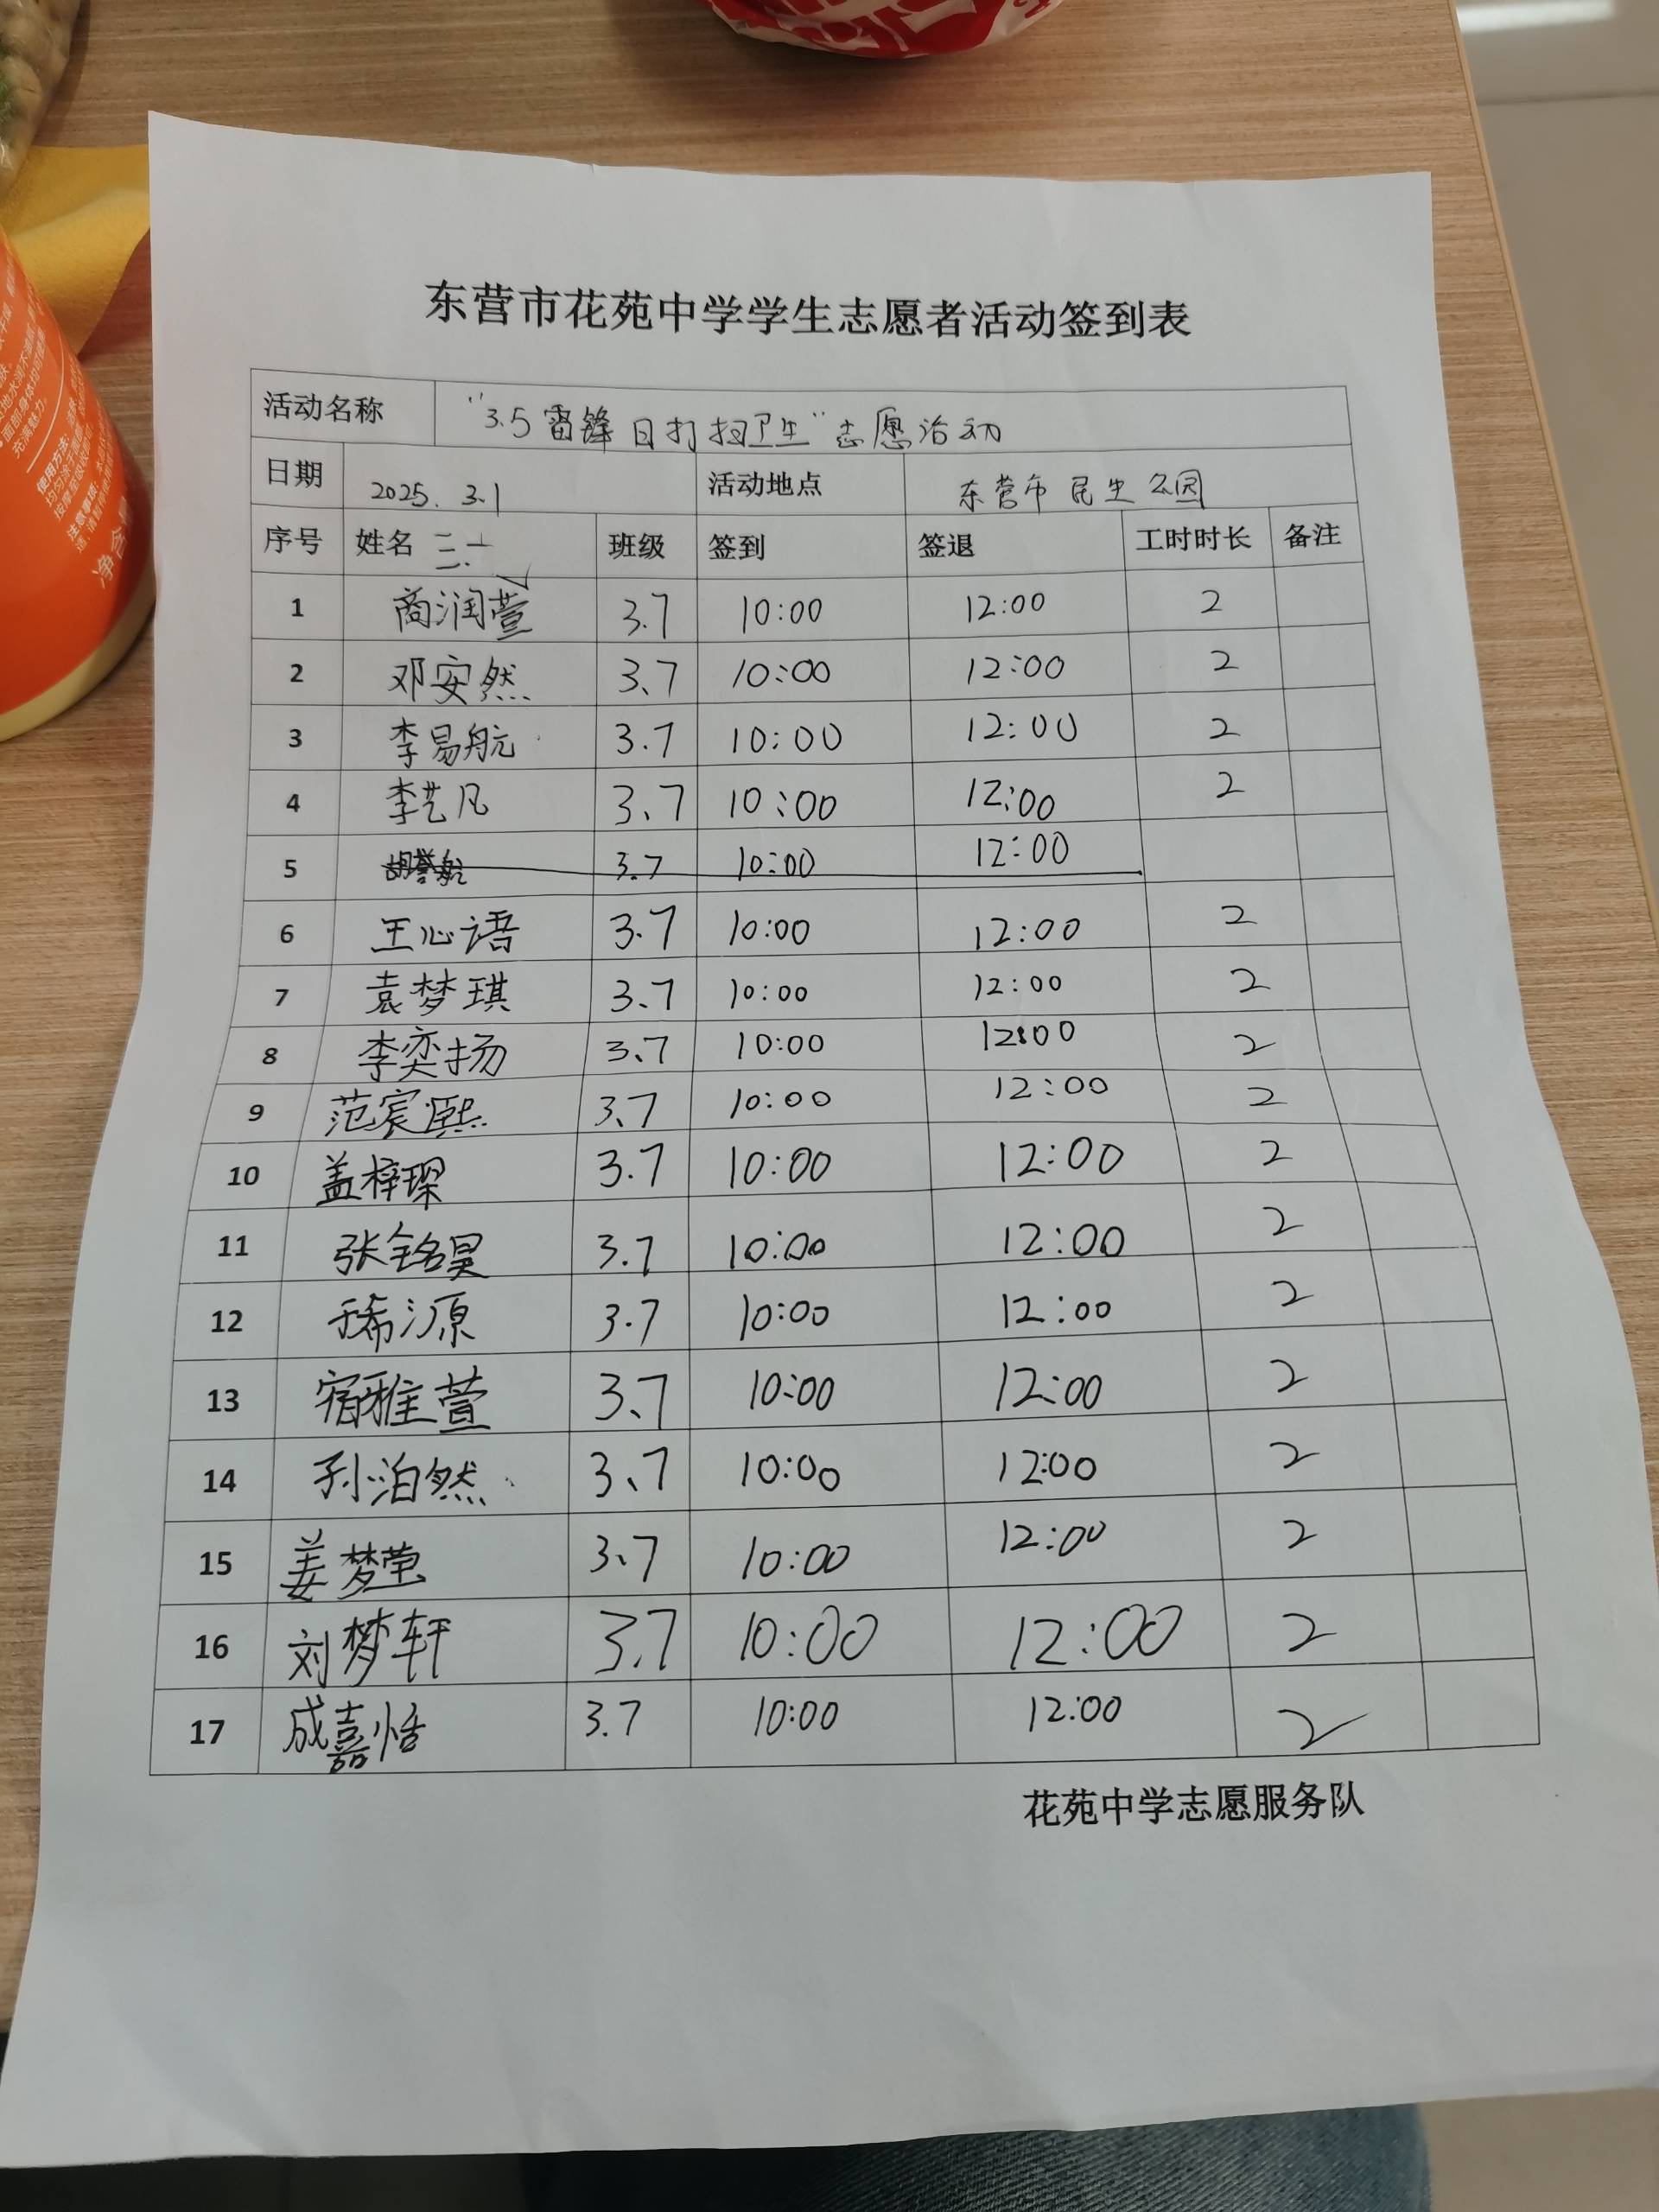 东营市花苑中学学生志愿者活动签到表
活动名称 "3.5雷锋日打扫卫生"志愿活动
日期 2025.3.1 活动地点 东营市民生公园
序号 姓名 班级 签到 签退 工时时长 备注
1 商润萱 3.7 10:00 12:00 2
2 邓安然 3、7 10:00 12:00 2
3 李易航 3.7 10:00 12:00 2
4 李艺凡 3、7 10:00 12:00 2
5 胡誉航 3.7 10:00 12:00
6 王心语 3.7 10:00 12:00 2
7 袁梦琪 3、7 10:00 12:00 2
8 李奕扬 3、7 10:00 12:00 2
9 范宸熙 3、7 10:00 12:00 2
10 盖梓琛 3.7 10:00 12:00 2
11 张铭昊 3.7 10:00 12:00 2
12 于希源 3.7 10:00 12:00 2
13 宿雅萱 3、7 10:00 12:00 2
14 孙泊然 3、7 10:00 12:00 2
15 姜梦莹 3、7 10:00 12:00 2
16 刘梦轩 3.7 10:00 12:00 2
17 成嘉恬 3.7 10:00 12:00 2
花苑中学志愿服务队
使用方法:
注意事项:
净含量